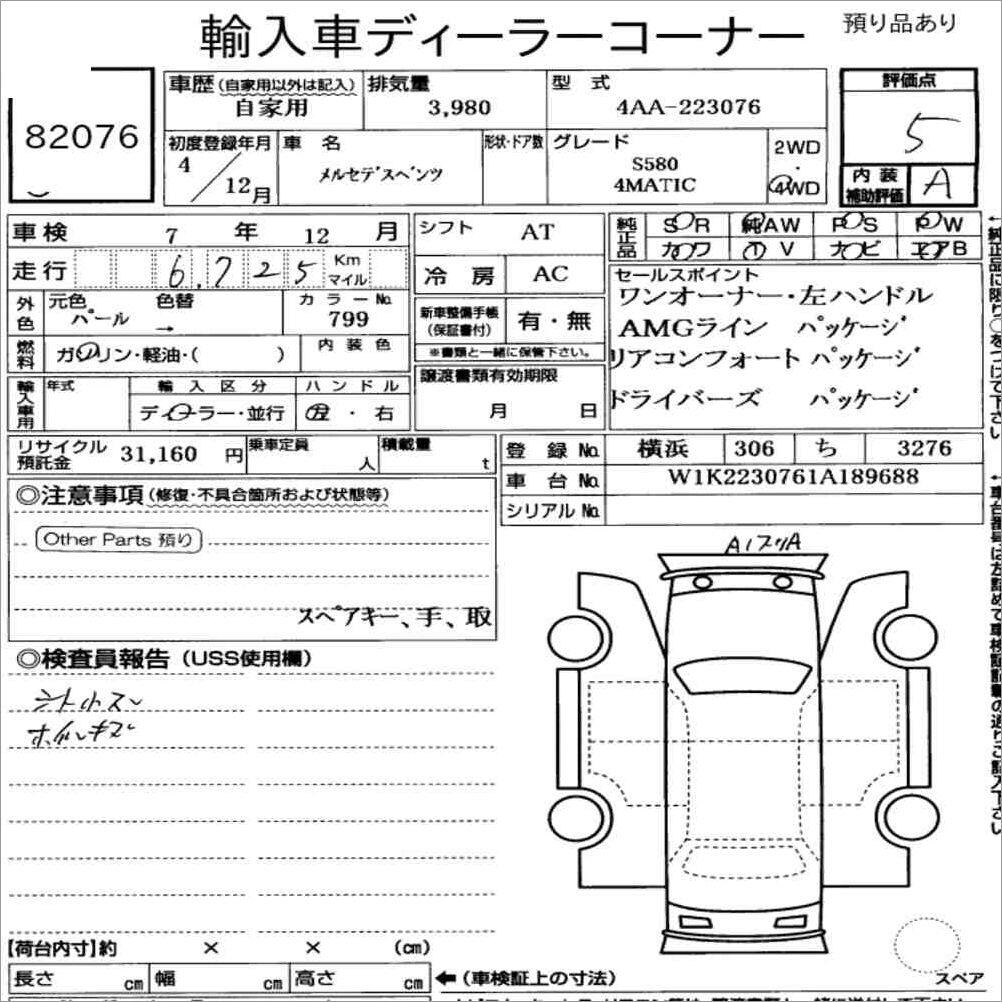 輸入車ディーラーコーナー
預り品あり
82076
車歴(自家用以外は記入) 排気量 型 式 評価点
自家用 3,980 4AA-223076 5
初度登録年月 車 名 形状・ドア数 グレード 2WD
4/12月 メルセデスベンツ S580 4MATIC ・ 4WD
内装補助評価 A
車検 7 年 12 月
走行 6,725 Km マイル
シフト AT
冷房 AC
純正品 SR 純AW PS PW
カワ TV ナビ エアB
外色 元色 パール 色替 → カラーNo. 799
燃料 ガソリン・軽油・( ) 内装色
新車整備手帳(保証書付) 有・無
※書類と一緒に保管下さい。
セールスポイント
ワンオーナー・左ハンドル
AMGライン パッケージ
リアコンフォート パッケージ
ドライバーズ パッケージ
←純正品に限り○をつけて下さい
輸入車用 年式 輸入区分 ハンドル
ディーラー・並行 左・右
譲渡書類有効期限
月 日
リサイクル預託金 31,160 円 乗車定員 人 積載量 t
登録No. 横浜 306 ち 3276
車台No. W1K2230761A189688
シリアルNo.
◎注意事項(修復・不具合箇所および状態等)
Other Parts 預り
スペアキー、手、取
◎検査員報告(USS使用欄)
シート小スレ
ホイルキズ
A1フリA
【荷台内寸】約 × × (cm)
長さ cm 幅 cm 高さ cm ←(車検証上の寸法)
スペア